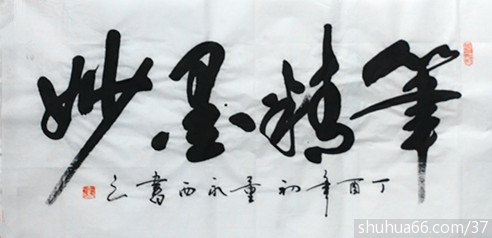 筆精墨妙
丁酉年初董永西書之
shuhua66.com/37